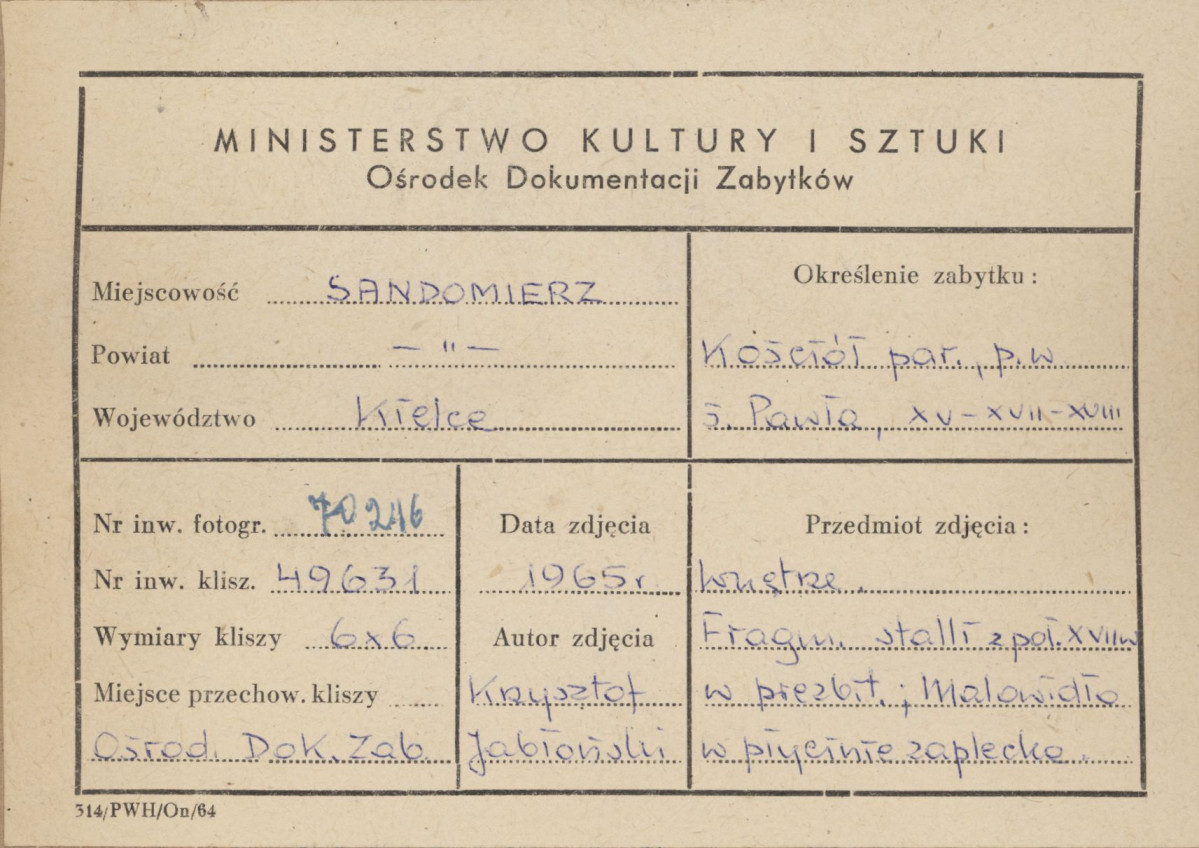 MINISTERSTWO KULTURY I SZTUKI
Ośrodek Dokumentacji Zabytków
Miejscowość SANDOMIERZ
Powiat — " —
Województwo Kielce
Określenie zabytku:
Kościół par., p.w
ś. Pawła, XV-XVII-XVIII
Nr inw. fotogr. 70246
Nr inw. klisz. 49631
Wymiary kliszy 6x6
Miejsce przechow. kliszy
Ośrod. Dok. Zab.
Data zdjęcia
1965r
Autor zdjęcia
Krzysztof
Jabłoński
Przedmiot zdjęcia:
Wnętrze.
Fragm. stalli z poł. XVII w
w prezbit.; Malowidło
w płycinie zaplecka.
314/PWH/On/64